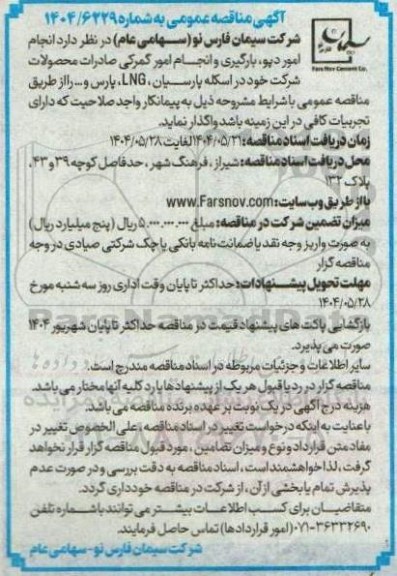 آگهی مناقصه عمومی به شماره ۱۴۰۴/۶۲۲۹
Fars Nov Cement Co.
شرکت سیمان فارس نو (سهامی عام) در نظر دارد انجام
امور دپو، بارگیری و انجام امور گمرکی صادرات محصولات
شرکت خود در اسکله پارسیان، LNG، پارس و... را از طریق
مناقصه عمومی با شرایط مشروحه ذیل به پیمانکار واجد صلاحیت که دارای
تجربیات کافی در این زمینه باشد واگذار نماید.
زمان دریافت اسناد مناقصه: ۱۴۰۴/۰۵/۲۱ لغایت ۱۴۰۴/۰۵/۲۸
محل دریافت اسناد مناقصه: شیراز، فرهنگ شهر، حدفاصل کوچه ۳۹ و ۴۳،
پلاک ۱۳۲
یا از طریق وب سایت: www.Farsnov.com
میزان تضمین شرکت در مناقصه: مبلغ ۵.۰۰۰.۰۰۰.۰۰۰ ریال (پنج میلیارد ریال)
به صورت واریز وجه نقد یا ضمانت نامه بانکی یا چک شرکتی صیادی در وجه
مناقصه گزار
مهلت تحویل پیشنهادات: حداکثر تا پایان وقت اداری روز سه شنبه مورخ
۱۴۰۴/۰۵/۲۸
بازگشایی پاکت های پیشنهاد قیمت در مناقصه حداکثر تا پایان شهریور ۱۴۰۴
صورت می پذیرد.
سایر اطلاعات و جزئیات مربوطه در اسناد مناقصه مندرج است.
مناقصه گزار در رد یا قبول هر یک از پیشنهادها یا رد کلیه آنها مختار می باشد.
هزینه درج آگهی در یک نوبت بر عهده برنده مناقصه می باشد.
با عنایت به اینکه درخواست تغییر در اسناد مناقصه، علی الخصوص تغییر در
مفاد متن قرارداد و نوع و میزان تضامین، مورد قبول مناقصه گزار قرار نخواهد
گرفت، لذا خواهشمند است، اسناد مناقصه به دقت بررسی و در صورت عدم
پذیرش تمام یا بخشی از آن، از شرکت در مناقصه خودداری گردد.
متقاضیان برای کسب اطلاعات بیشتر می توانند با شماره تلفن
۰۷۱-۳۶۳۳۲۶۹۰ (امور قراردادها) تماس حاصل فرمایند.
شرکت سیمان فارس نو-سهامی عام